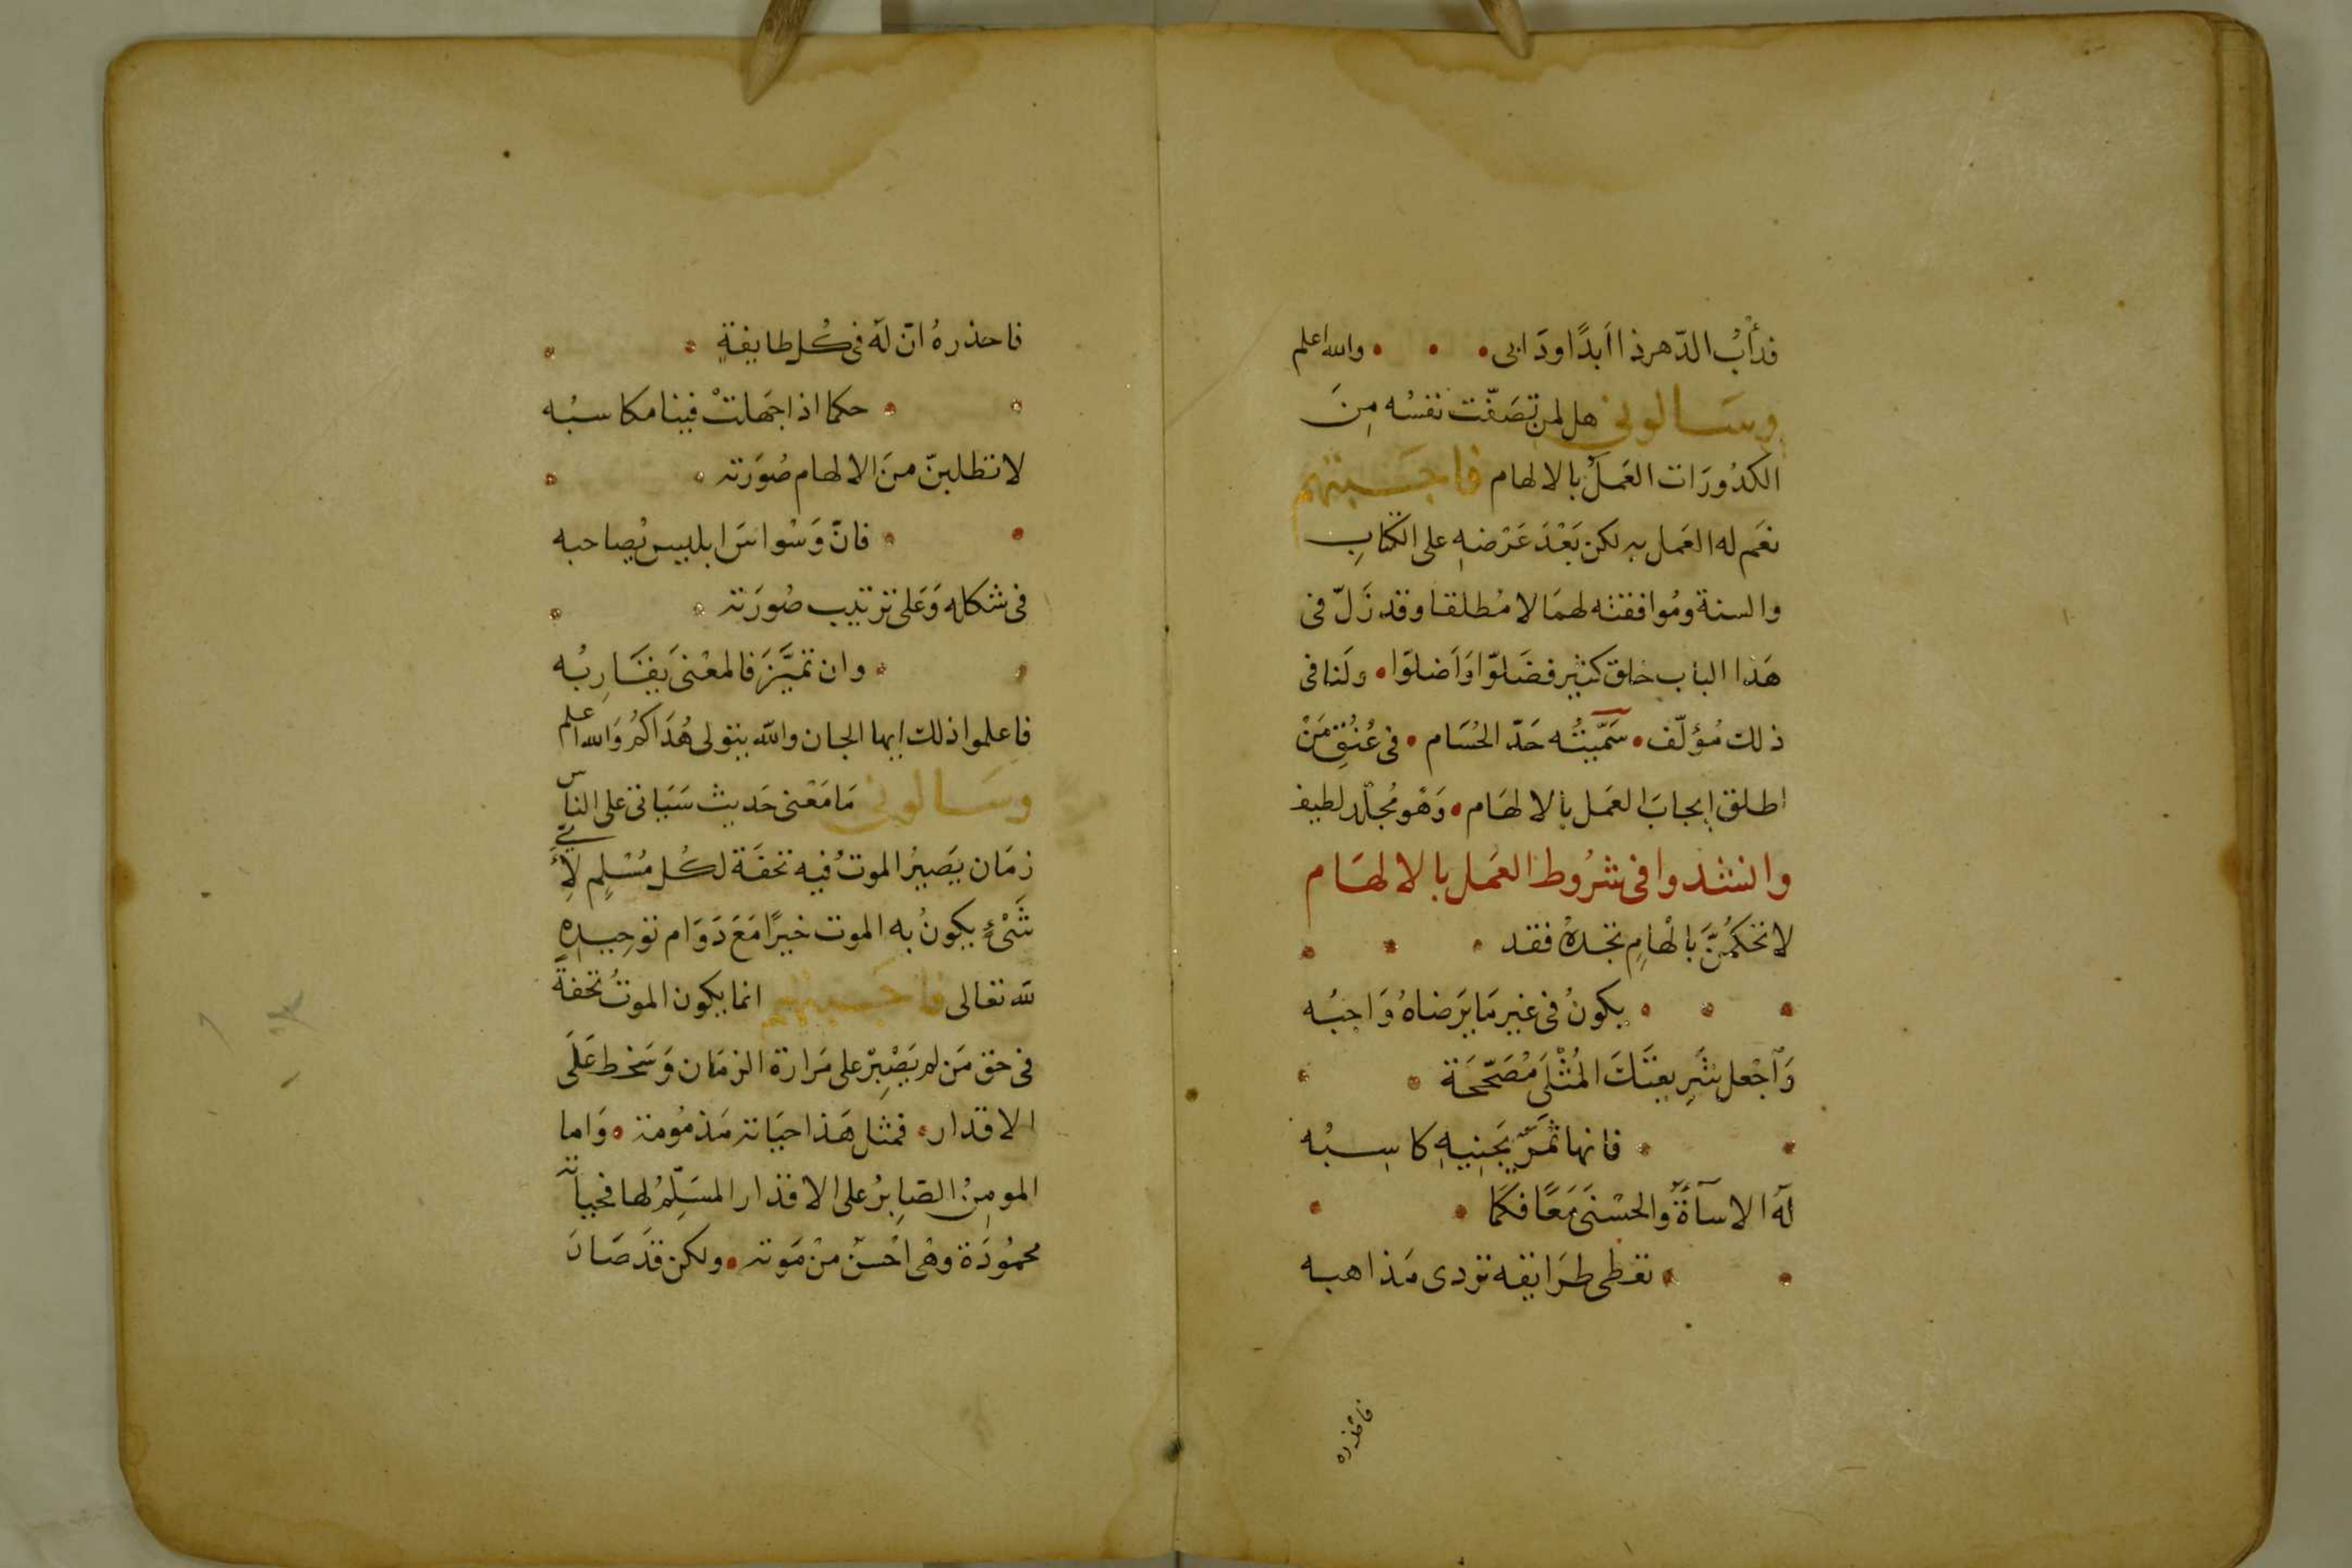 فدأبُ الدّهر ذا أبدًا ودَابى • • • والله اعلم
وسَالونى هل لمن تصَفّت نفسُه مِنَ
الكدُورَات العَملُ بالالهام فاجَبتهم
نعَم له العَمل به لكن بَعْدَ عَرْضهِ على الكتابِ
والسنة ومُوافقته لهمَا لا مُطلقا وقد زَلّ فى
هَذا الباب خلق كثير فضَلوّا وَاَضلوَا • ولنا فى
ذلك مُؤلّف • سَمَّيتُه حَدّ الحُسَام • فى عُنُقِ مَنْ
اطلق اِيجابَ العَمل بالالهَام • وَهْو مُجلّد لطيف
وانشدوا فى شرُوط العَمل بالالهَام
لا تحكمُنَّ بالْهامٍ تجدهُ فقد • • •
• • • يكونُ فى غير مَا يَرضاهُ وَاجبُه
وَاَجْعل شَرِيعتَكَ المُثْلَى مُصَحّحَة • •
• • فانها ثمَرٌ يَجنِيهِ كاسِبُه
لهُ الاسآةُ والحسْنَى مَعًا فكمَا • •
• • تعطى طرَايقه تردى مَذاهبه
فاحذره
فاحذرهُ انّ لهُ فى كُل طايفةٍ • •
• • حكما اذا جَهلتْ فينا مكاسبُه
لا تطلبنّ منَ الالهام صُوَرته • •
• • فانّ وَسْواسَ ابليس يُصاحبه
فى شكله وَعَلى ترتيب صُورَته • •
• • وان تميَّزَ فالمعْنىَ يقَارِبُه
فاعلموا ذلك ايها الجان والله يتولى هُدَاكمُ وَالله اعلم
وسَالونى مَا مَعْنى حَديث سَيَاتى على الناس
زمَان يَصيرُ الموتُ فيه تحفَة لكُل مُسْلمٍ لِأَىّ
شَىْءٍ يكونُ به الموت خيرًا مَعَ دَوَام توحيدِهِ
لله تعالى فاجَبتهم انما يكون الموتُ تحفةً
فى حق مَن لم يَصْبِرْ على مَرارة الزمَان وَسَخط عَلَى
الاقدار • فمثل هَذا حيَاته مَذمُومة • وَاما
المومِنُ الصَابِرُ على الاقدار المسَلِّمُ لها فحياته
محمُودَة وهْى احْسنُ منْ مَوته • ولكن قدَ صَانَ